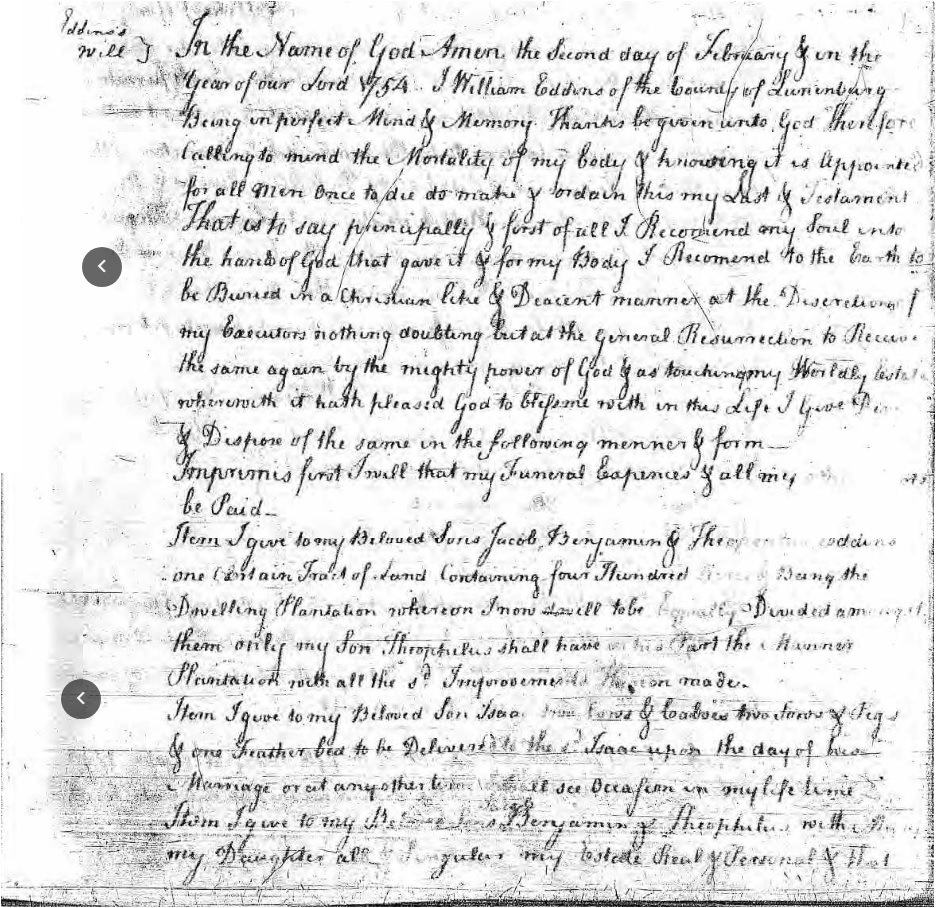 Eddins's
Will } In the Name of God Amen. the Second day of February & in the
Year of our Lord 1754. I William Eddins of the County of Lunenburg
Being in perfect Mind & Memory. Thanks be given unto God Therefore
Calling to mind the Mortality of my body & knowing it is Appointed
for all Men Once to die do make & ordain this my Last & Testament
That is to say principally & first of all I Recomend my Soul into
the hands of God that gave it & for my Body I Recomend to the Earth to
be Buried in a Christian like & Deacent manner at the Discretion of
my Executors nothing doubting but at the General Resurrection to Receive
the same again by the mighty power of God & as touching my Worldly Estate
wherewith it hath pleased God to bless me with in this Life I Give
& Dispose of the same in the following menner & form
Imprimis first I will that my Funeral Expences & all my
be Paid
Item I give to my Beloved Sons Jacob, Benjamin & Theophilus Eddins
one Certain Tract of Land Containing four Hundred Acres Being the
Dwelling Plantation whereon I now dwell to be Equally Divided amongst
them only my Son Theophilus shall have in his Part the Manner
Plantation with all the sd Improvements thereon made.
Item I give to my Beloved Son Isaac two Cows & Calves two Sows & Pigs
& one Feather bed to be Deliverd to the sd Isaac upon the day of his
Marriage or at any other time shall see Occasion in my life time
Item I give to my Beloved Sons Benjamin & Theophilus with
my Daughter all & Singular my Estate Real & Personal & that